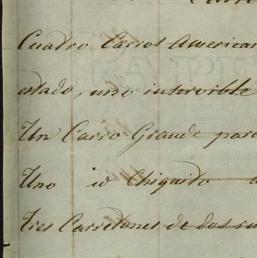 Cuatro Carros American
estado, uno inservible
Un Carro Grande para
Uno id Chiquito
Tres Carretones de dos ru